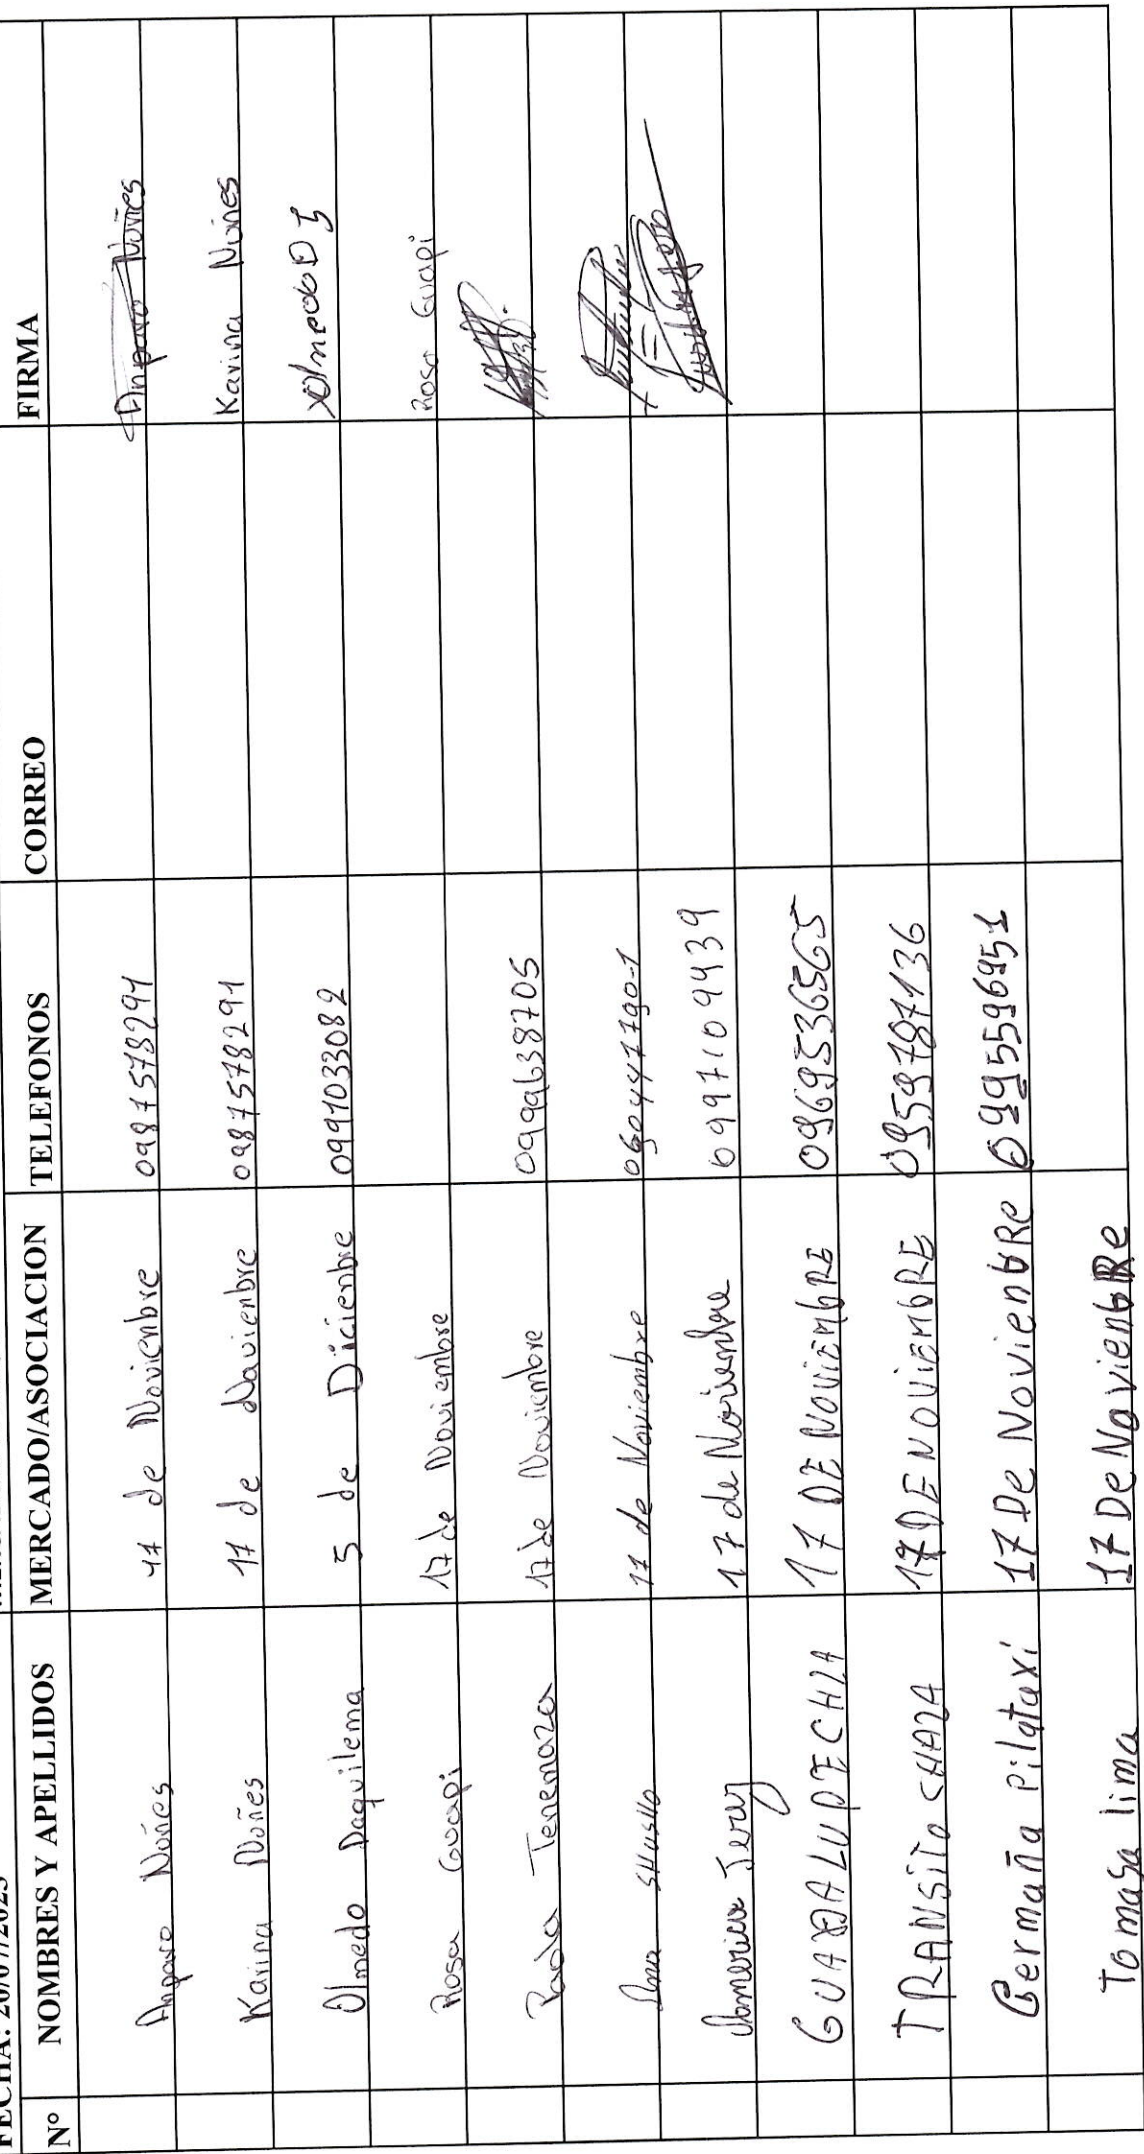 FECHA: 20/07/2023
Nº NOMBRES Y APELLIDOS MERCADO/ASOCIACION TELEFONOS CORREO FIRMA
Anparo Nuñes 17 de Novienbre 0987578291 Anparo Nuñes
Karina Nuñes 17 de Novienbre 0987578291 Karina Nuñes
Olmedo Daquilema 5 de Dicienbre 0991033082 Olmedo D
Rosa Guapi 17 de Noviembre Rosa Guapi
Paola Tenemaza 17 de Noviembre 0999638705
Ana 17 de Noviembre 060447790-1
Americo Jerez 17 de Noviembre 0997109439
GUADALUPE CHZA 17 DE NOVIEMbRE 0969536565
TRANSiTo CHAZA 17 DE NOVIEMbRE 0959787136
Germaña Pilataxi 17 De NovienbRe 0995596951
Tomasa lima 17 De NovienbRe